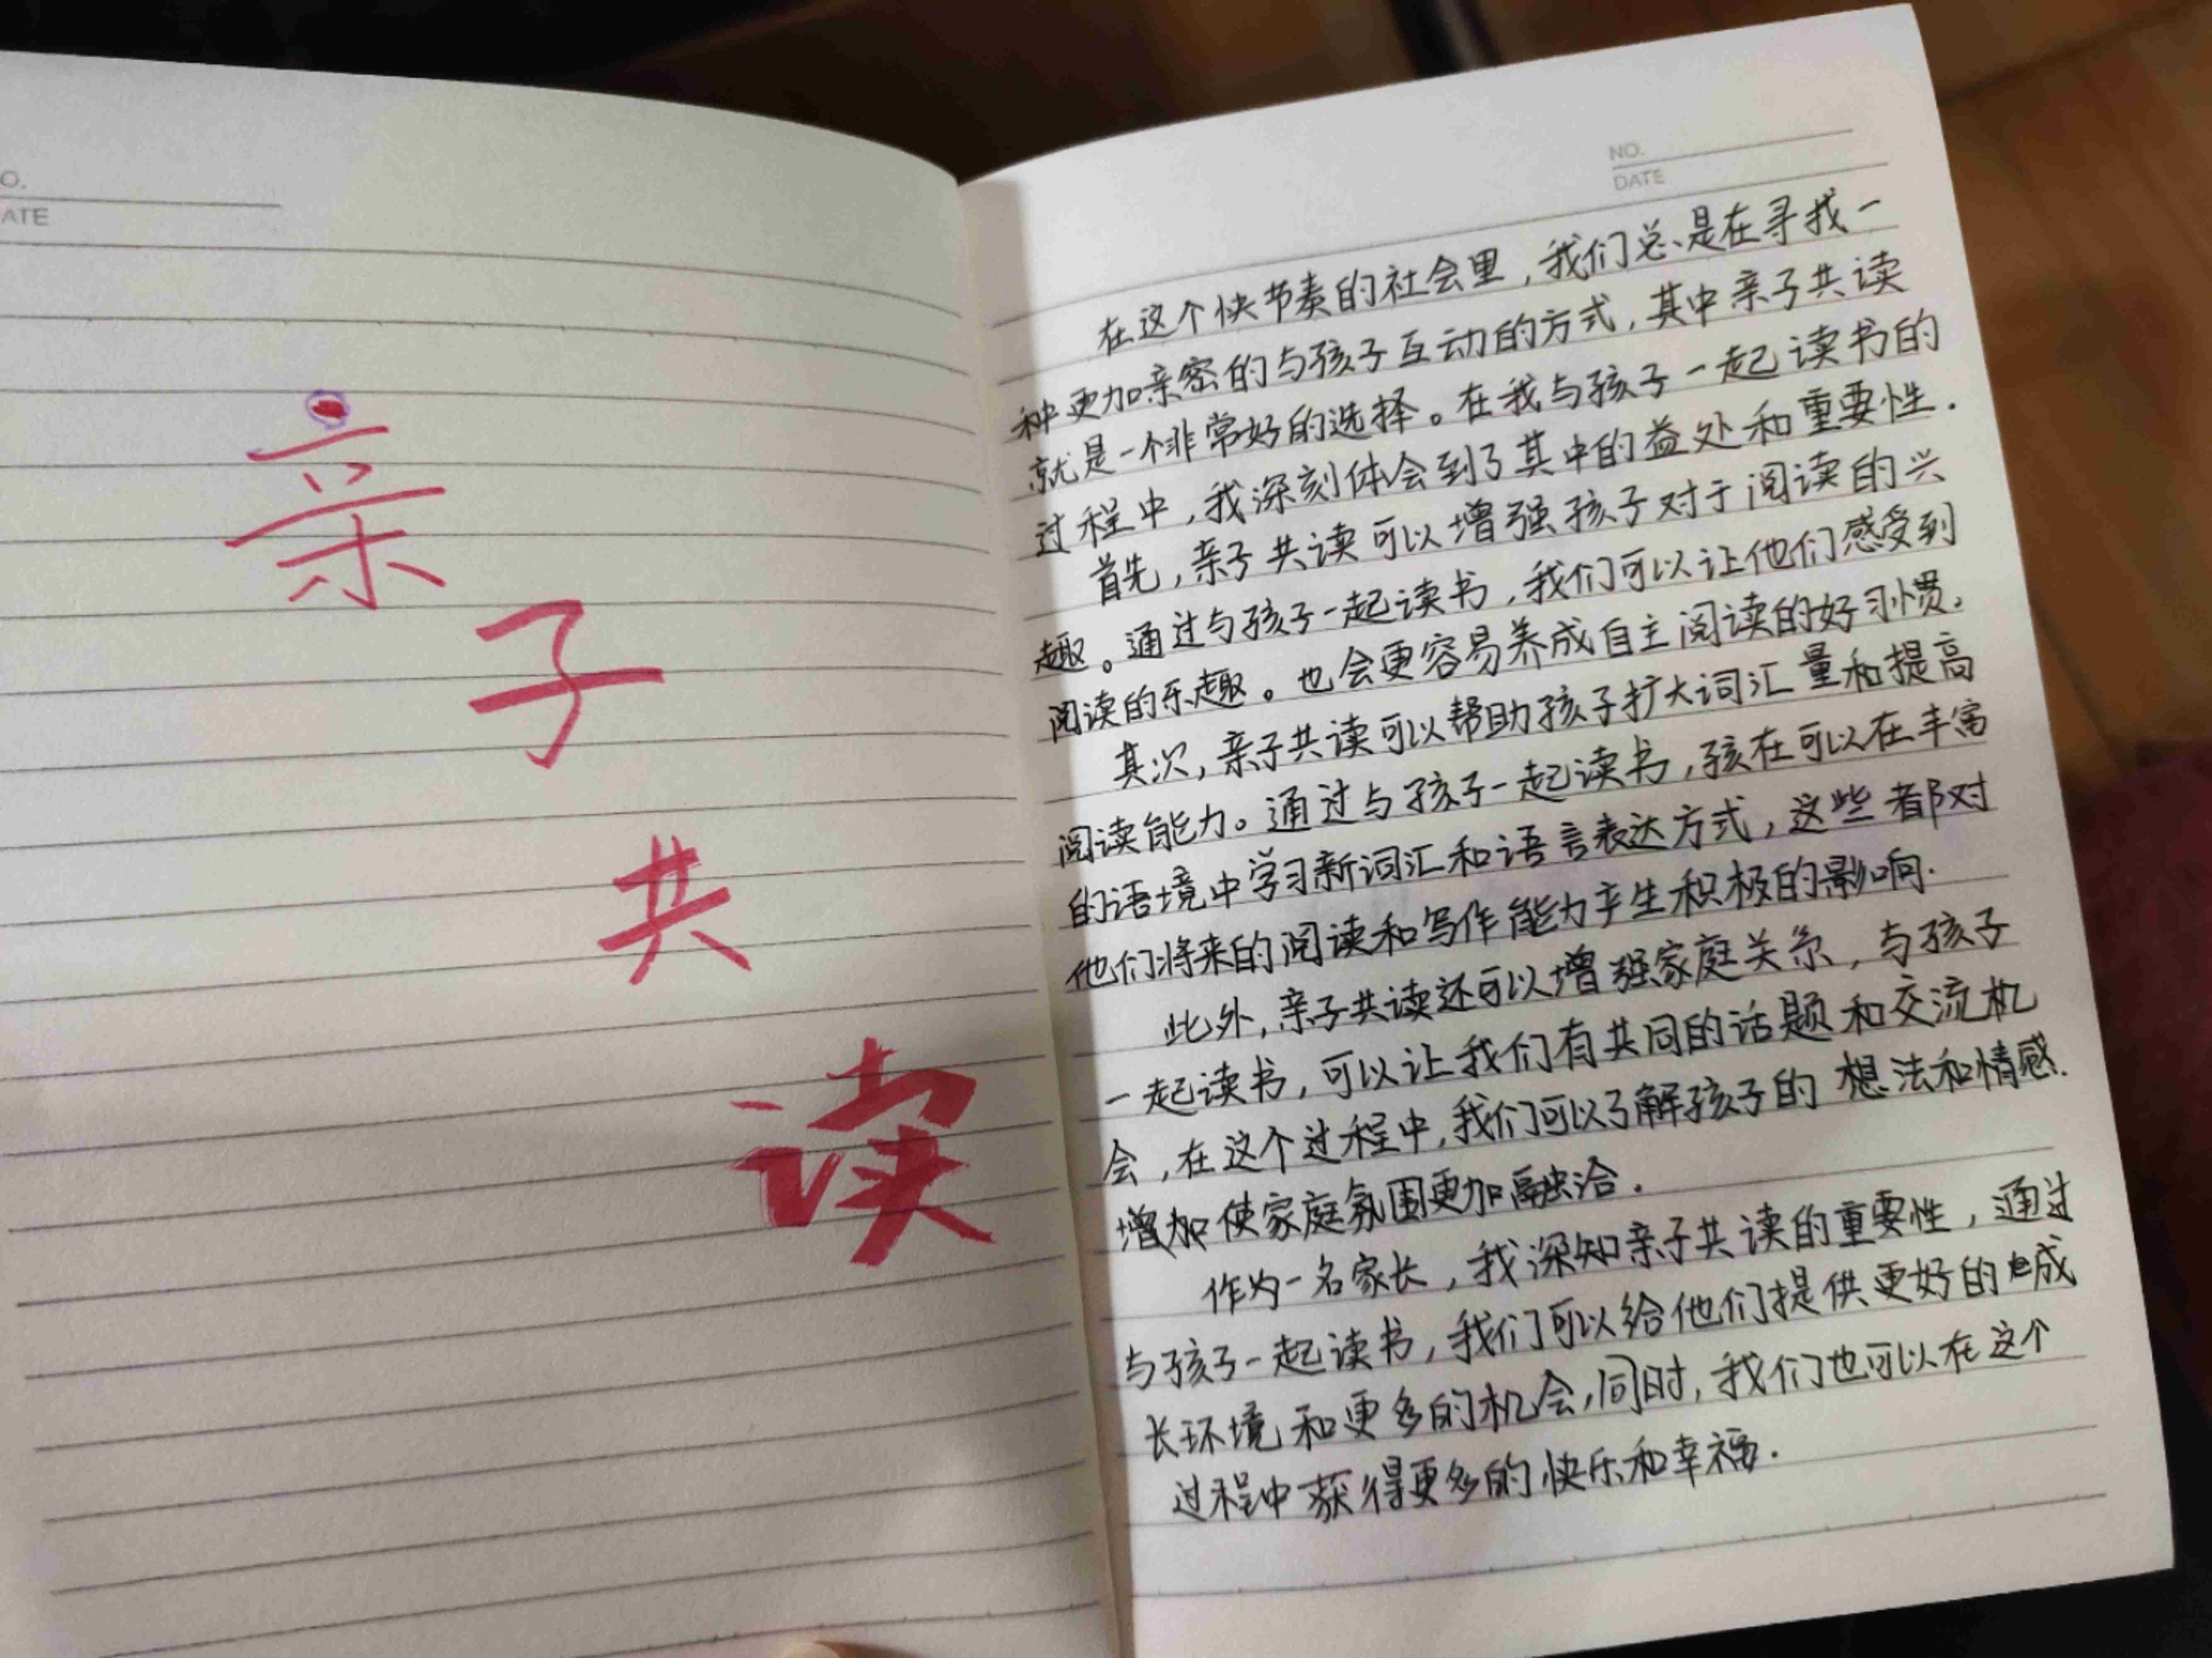 O.
ATE
亲
子
共
读
NO.
DATE
在这个快节奏的社会里，我们总是在寻找一
种更加亲密的与孩子互动的方式，其中亲子共读
就是一个非常好的选择。在我与孩子一起读书的
过程中，我深刻体会到了其中的益处和重要性.
首先，亲子共读可以增强孩子对于阅读的兴
趣。通过与孩子一起读书，我们可以让他们感受到
阅读的乐趣。也会更容易养成自主阅读的好习惯。
其次，亲子共读可以帮助孩子扩大词汇量和提高
阅读能力。通过与孩子一起读书，孩在可以在丰富
的语境中学习新词汇和语言表达方式，这些都对
他们将来的阅读和写作能力产生积极的影响.
此外，亲子共读还可以增强家庭关系，与孩子
一起读书，可以让我们有共同的话题和交流机
会，在这个过程中，我们可以了解孩子的想法和情感.
增加使家庭氛围更加融洽.
作为一名家长，我深知亲子共读的重要性，通过
与孩子一起读书，我们可以给他们提供更好的成
长环境和更多的机会，同时，我们也可以在这个
过程中获得更多的快乐和幸福.